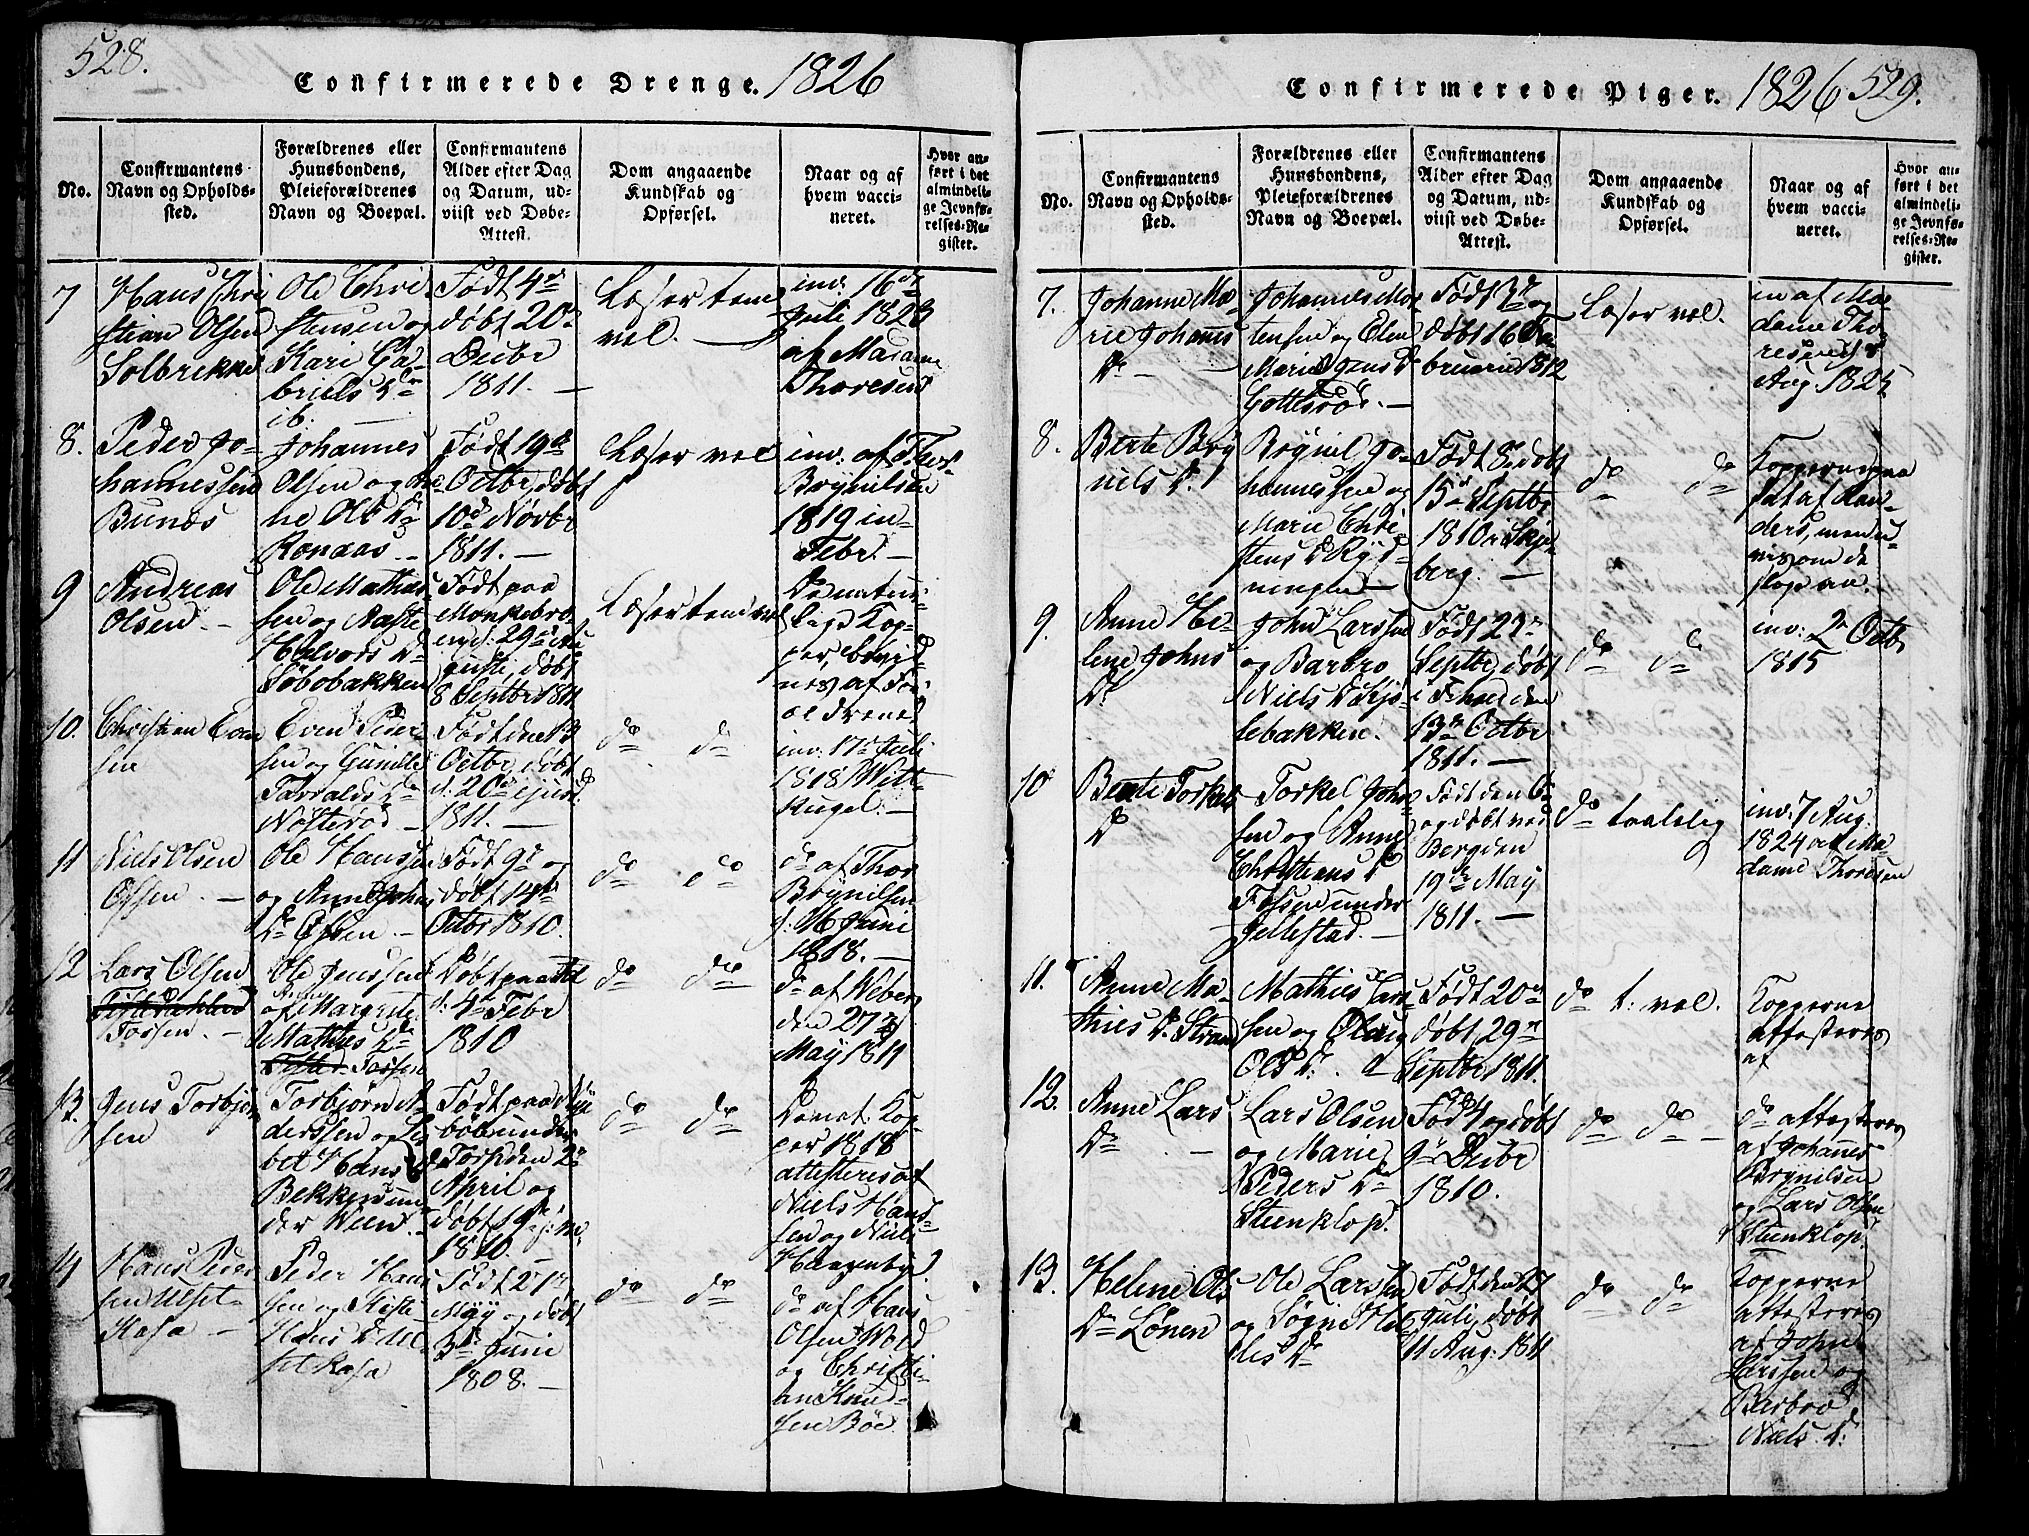 528.
Confirmerede Drenge. 1826
No.
Confirmantens
Navn og Opholds-
sted.
Forældrenes eller
Huusbondens,
Pleieforældrenes
Navn og Boepæl.
Confirmantens
Alder efter Dag
og Datum, ud-
viist ved Døbe-
Attest.
Dom angaaende
Kundskab og
Opførsel.
Naar og af
hvem vacci-
neret.
Hvor an-
ført i det
almindeli-
ge Jevnfø-
relses-Re-
gister.
7
Hans Chri
stian Olsen
Solbrekke
Ole Chri
stensen og
Kari Ga-
briels Dr
ib.
Født 4de
døbt 20de
Decbr
1811. —
Læser tem
vel. —
inv. 16de
Juli 1823
af Madame
Thoresen
8.
Peder Jo-
hannessen
Bunæs
Johannes
Olsen og
ne Ols Dr
Rondaas —
Født 19de
Octbr, døbt
10de Novbr
1811. —
Læser vel
inv. af Thor
Brynilsen
1819 in
Febr. —
9
Andreas
Olsen. —
Ole Mathis
sen og Aaste
Halvors Dr
Søbobakken
Født paa
Monkebro
en d. 29de Au
gusti, døbt
8 Septbr 1811
Læser tem vel
De natur-
lige Kop-
per, bevid-
nes af For
ældrene
10.
Christian Even
sen
Even Peder
sen og Gunild
Torvalds Dr
Nosterød —
Født den 13
Octbr, døbt
d. 20de ejusd.
1811. —
do do
inv. 17de Juli
1818 Witt-
Kugel. —
11
Niels Olsen
Ofsen. —
Ole Hanssen
og Anne Johan
Dr Ofsen. —
Født 9de og
døbt 14de
Octbr 1810.
do do
do af Thor
Brynilsen
d. 16 Juni
1818. —
12
Lars Olsen
Fossen. —
Ole Jenssen
og Margrete
Mathis Dr
Fossen
Døbt paa
d. 4de Febr
1810
do do
do af Weber
den 27de
May 1811
13.
Jens Torbjørn
sen
Torbjørn A
derssen og Lis
bet Hans Dr
Bekken un
der Ween. —
Født paa Nye
bøe under
Torp den 2de
April og
døbt 19de j. m.
1810. —
do do
De nat. Kop
per 1818
attesteres af
Niels Hans
sen og Niels
Haagenby
14
Hans Peder
sen Ulfsit-
Kasa —
Peder Hans
sen og Kiste
Hans Dr Ul
sitkasa
Født 27de
May og døbt
3de Juni
1808. —
do do
do af Hans
Olsen Wold
og Christi-
an Knud-
sen Bøe
Confirmerede Piger. 1826 529.
No.
Confirmantens
Navn og Opholds-
sted.
Forældrenes eller
Huusbondens,
Pleieforældrenes
Navn og Boepæl.
Confirmantens
Alder efter Dag
og Datum, ud-
viist ved Døbe-
Attest.
Dom angaaende
Kundskab og
Opførsel.
Naar og af
hvem vacci-
neret.
Hvor an-
ført i det
almindeli-
ge Jevnfø-
relses-Re-
gister.
7.
Johanne Ma-
rie Johannes
Dr —
Johannes Mor
tensen og Elen
Marie Ogens Dr
Gottesrød. —
Født 3de og
døbt 16 Fe
bruarii 1812
Læser vel.
in af Ma-
dame Tho-
resen d. 8
Aug 1825
8.
Berte Bry
niels Dr.
Brynil Jo-
hannessen og
Marie Chri
stens Dr Ryd-
ningen —
Født 8de døbt
15de Septbr
1810 i Skje
berg. —
do do
Kopperne paa
af Han-
ders, men u-
vis om de
slog an. —
9.
Anne He-
lene Johns
Dr
John Larssen
og Barbro
Niels Dr Kjø-
lebakken.
Født 23de
Septbr, døbt
i Thoes den
13de Octbr
1811. —
do do
inv: 2de Octbr
1815
10
Bente Torkels
Dr
Torkel John
sen og Anne
Christians Dr
Fossen under
Jellestad. —
Født den 6te
og døbt ved
Berg den
19de May
1811. —
do taalelig
inv. 7 Aug.
1824 af Ma-
dame Thoresen
11.
Anne Ma-
thies Dr Strand
Mathies Lars
sen og Olaug
Ols Dr.
Født 20de
døbt 29de
Septbr 1811.
do t. vel.
Kopperne
attesteres
af
12.
Anne Lars
Dr —
Lars Olsen
og Marie
Peders Dr
Steenklop.
Født 4 og døbt
9de Decbr
1810.
do do —
do attesteres
af Johannes
Brynilsen
og Lars Olsen
Steenklop.
13.
Helene Ols
Dr Lønen
Ole Larssen
og Søgni
les Dr
Født den 17
Juli, døbt
11 Aug. 1811
do do
Kopperne
attesteres
af John
Larssen og
Barbro
Niels Dr.